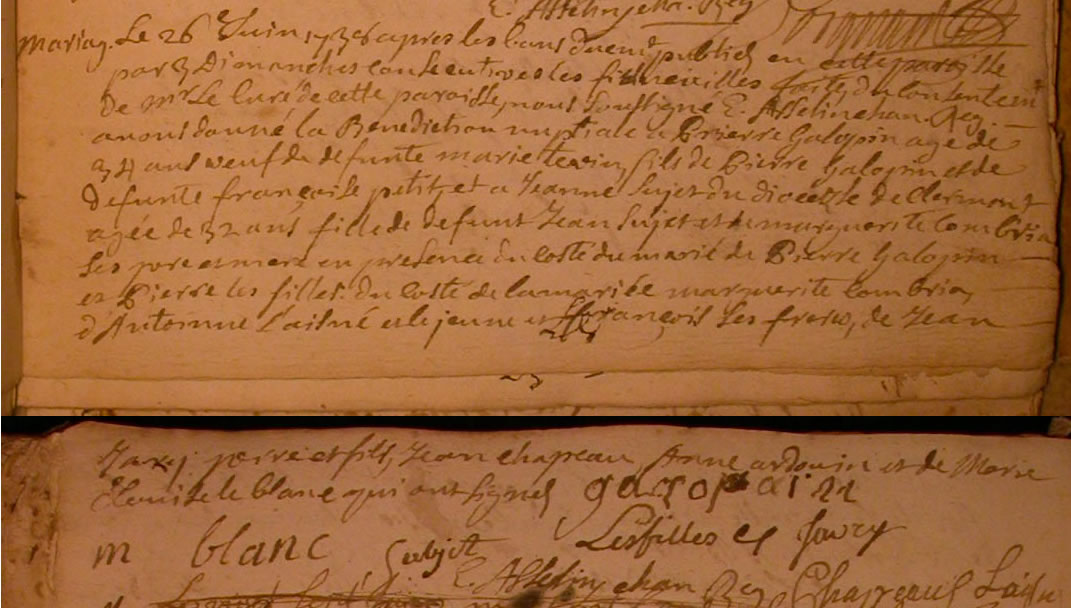 E. Asselin chan. Reg
mariag. Le 26 Juin 1736 apres les bans duemt publiés en cette paroisse
par 3 Dimanches consecutives les fiancailles faites du consentemt
De mr Le Curé de cette paroisse, nous soussigné E. Asselin chan. Reg.
avons donné la Benediction nuptiale a Pierre Galopin agé de
34 ans veuf de defunte marie fils de Pierre Galopin et de
defunte françoise petit, et a Jeanne Sujet du diocesse de Clermont
agée de 32 ans fille de defunt Jean Sujet et de marguerite Combria
Ses pere et mere en presence du costé du marié de Pierre Galopin
et Pierre les filles. du costé de la mariée marguerite Combria,
d'Antoinne L'aisné et le jeune et françois Ses freres, de Jean
pere et fils, Jean chapeau, Anne ardouin et de Marie
Louise le blanc qui ont signés galopain
m blanc Subjet Lesfilles
E. Asselin chan Reg Chapeau